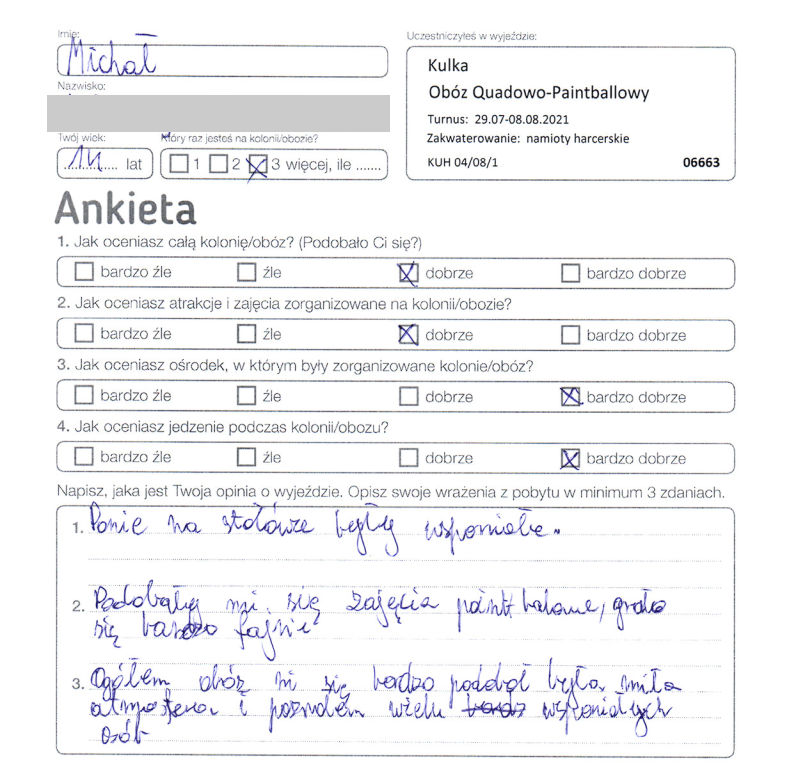 Imię:
Michał
Uczestniczyłeś w wyjeździe:
Kulka
Obóz Quadowo-Paintballowy
Turnus: 29.07-08.08.2021
Zakwaterowanie: namioty harcerskie
KUH 04/08/1 06663
Nazwisko:
Twój wiek:
14 lat
Który raz jesteś na kolonii/obozie?
1 2 3 więcej, ile .......
Ankieta
1. Jak oceniasz całą kolonię/obóz? (Podobało Ci się?)
bardzo źle źle dobrze bardzo dobrze
2. Jak oceniasz atrakcje i zajęcia zorganizowane na kolonii/obozie?
bardzo źle źle dobrze bardzo dobrze
3. Jak oceniasz ośrodek, w którym były zorganizowane kolonie/obóz?
bardzo źle źle dobrze bardzo dobrze
4. Jak oceniasz jedzenie podczas kolonii/obozu?
bardzo źle źle dobrze bardzo dobrze
Napisz, jaka jest Twoja opinia o wyjeździe. Opisz swoje wrażenia z pobytu w minimum 3 zdaniach.
1. Panie na stołówze były wspaniałe.
2. Podobały mi się zajęcia paintbalowe, grało
się bardzo fajnie
3. Ogółem obóz mi się bardzo podobał była miła
atmosfera i poznałem wielu wspaniałych
osób